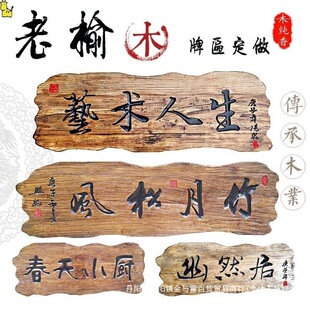 老榆木
牌匾定做
木纯香
藝术人生
竹月松風
春天小厨
幽然居
傳承木業